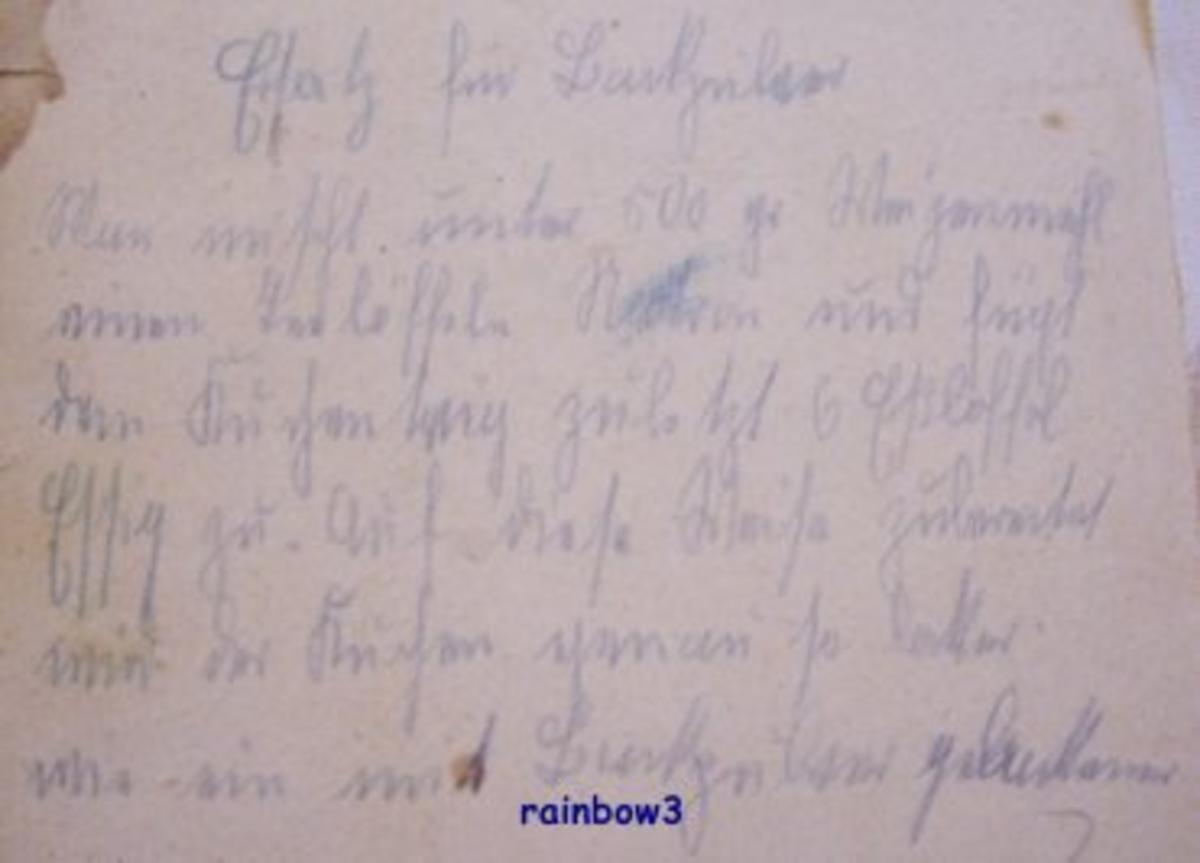 Ersatz für Backpulver
Man mischt unter 500 gr Weizenmehl
einen Teelöffeln Natron und fügt
den Kuchenteig zuletzt 6 Eßlöffel
Essig zu. Auf diese Weise zubereitet
wird der Kuchen genau so locker
wie ein mit Backpulver gebackener
rainbow3